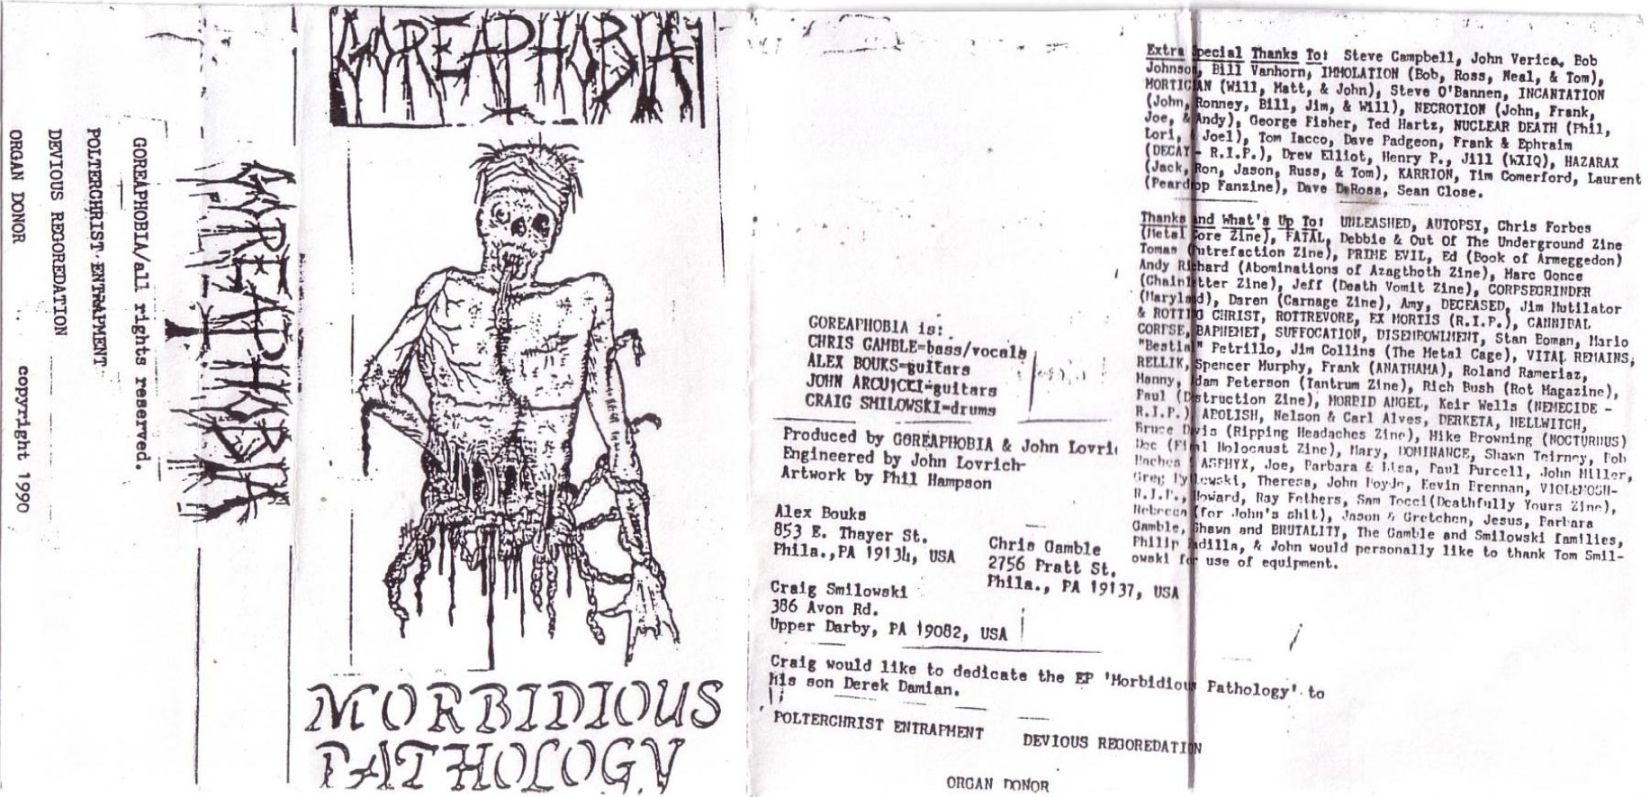 GOREAPHOBIA/all rights reserved.
POLTERCHRIST ENTRAPMENT
DEVIOUS REGOREDATION
ORGAN DONOR
copyright 1990
GOREAPHOBIA
GOREAPHOBIA
MORBIDIOUS
PATHOLOGY
GOREAPHOBIA is:
CHRIS GAMBLE=bass/vocals
ALEX BOUKS=guitars
JOHN ARCUICCI=guitars
CRAIG SMILOWSKI=drums
Produced by GOREAPHOBIA & John Lovri
Engineered by John Lovrich
Artwork by Phil Hampson
Alex Bouks
853 E. Thayer St.
Phila.,PA 19134, USA
Chris Gamble
2756 Pratt St.
Phila., PA 19137, USA
Craig Smilowski
386 Avon Rd.
Upper Darby, PA 19082, USA
Craig would like to dedicate the EP 'Morbidious Pathology' to
his son Derek Damian.
POLTERCHRIST ENTRAPMENT
DEVIOUS REGOREDATION
ORGAN DONOR
Extra Special Thanks To: Steve Campbell, John Verica, Bob
Johnson, Bill Vanhorn, IMMOLATION (Bob, Ross, Neal, & Tom),
MORTICIAN (Will, Matt, & John), Steve O'Bannen, INCANTATION
(John, Ronney, Bill, Jim, & Will), NECROTION (John, Frank,
Joe, & Andy), George Fisher, Ted Hartz, NUCLEAR DEATH (Phil,
Lori, & Joel), Tom Iacco, Dave Padgeon, Frank & Ephraim
(DECAY - R.I.P.), Drew Elliot, Henry P., Jill (WXIQ), HAZARAX
(Jack, Ron, Jason, Russ, & Tom), KARRION, Tim Comerford, Laurent
(Peardrop Fanzine), Dave DeRosa, Sean Close.
Thanks and What's Up To: UNLEASHED, AUTOPSY, Chris Forbes
(Metal Core Zine), FATAL, Debbie & Out Of The Underground Zine
Tomas (Putrefaction Zine), PRIME EVIL, Ed (Book of Armeggedon)
Andy Richard (Abominations of Azagthoth Zine), Marc Gonce
(Chainletter Zine), Jeff (Death Vomit Zine), CORPSEGRINDER
(Maryland), Daren (Carnage Zine), Amy, DECEASED, Jim Mutilator
& ROTTING CHRIST, ROTTREVORE, EX MORTIS (R.I.P.), CANNIBAL
CORPSE, BAPHEMET, SUFFOCATION, DISEMPOWLMENT, Stan Boman, Mario
"Bestial" Petrillo, Jim Collins (The Metal Cage), VITAL REMAINS,
RELLIK, Spencer Murphy, Frank (ANATHAMA), Roland Rameriaz,
Manny, Adam Peterson (Tantrum Zine), Rich Bush (Rot Magazine),
Paul (Destruction Zine), MORBID ANGEL, Keir Wells (NEMECIDE -
R.I.P.) APOLISH, Nelson & Carl Alves, DERKETA, HELLWITCH,
Bruce Davis (Ripping Headaches Zine), Mike Browning (NOCTURNUS)
Doc (Final Holocaust Zine), Mary, DOMINANCE, Shawn
ASPHYX, Joe, Barbara & Lisa, Paul Purcell, John Miller,
Greg Theresa, John Kevin Brennan,
R.I.P., Howard, Ray Fethers, Sam Tocci(Deathfully Yours Zine),
Rebecca (for John's shit), Jason & Gretchen, Jesus, Barbara
Gamble, Shawn and BRUTALITY, The Gamble and Smilowski families,
Philip Padilla, & John would personally like to thank Tom Smil-
owski for use of equipment.